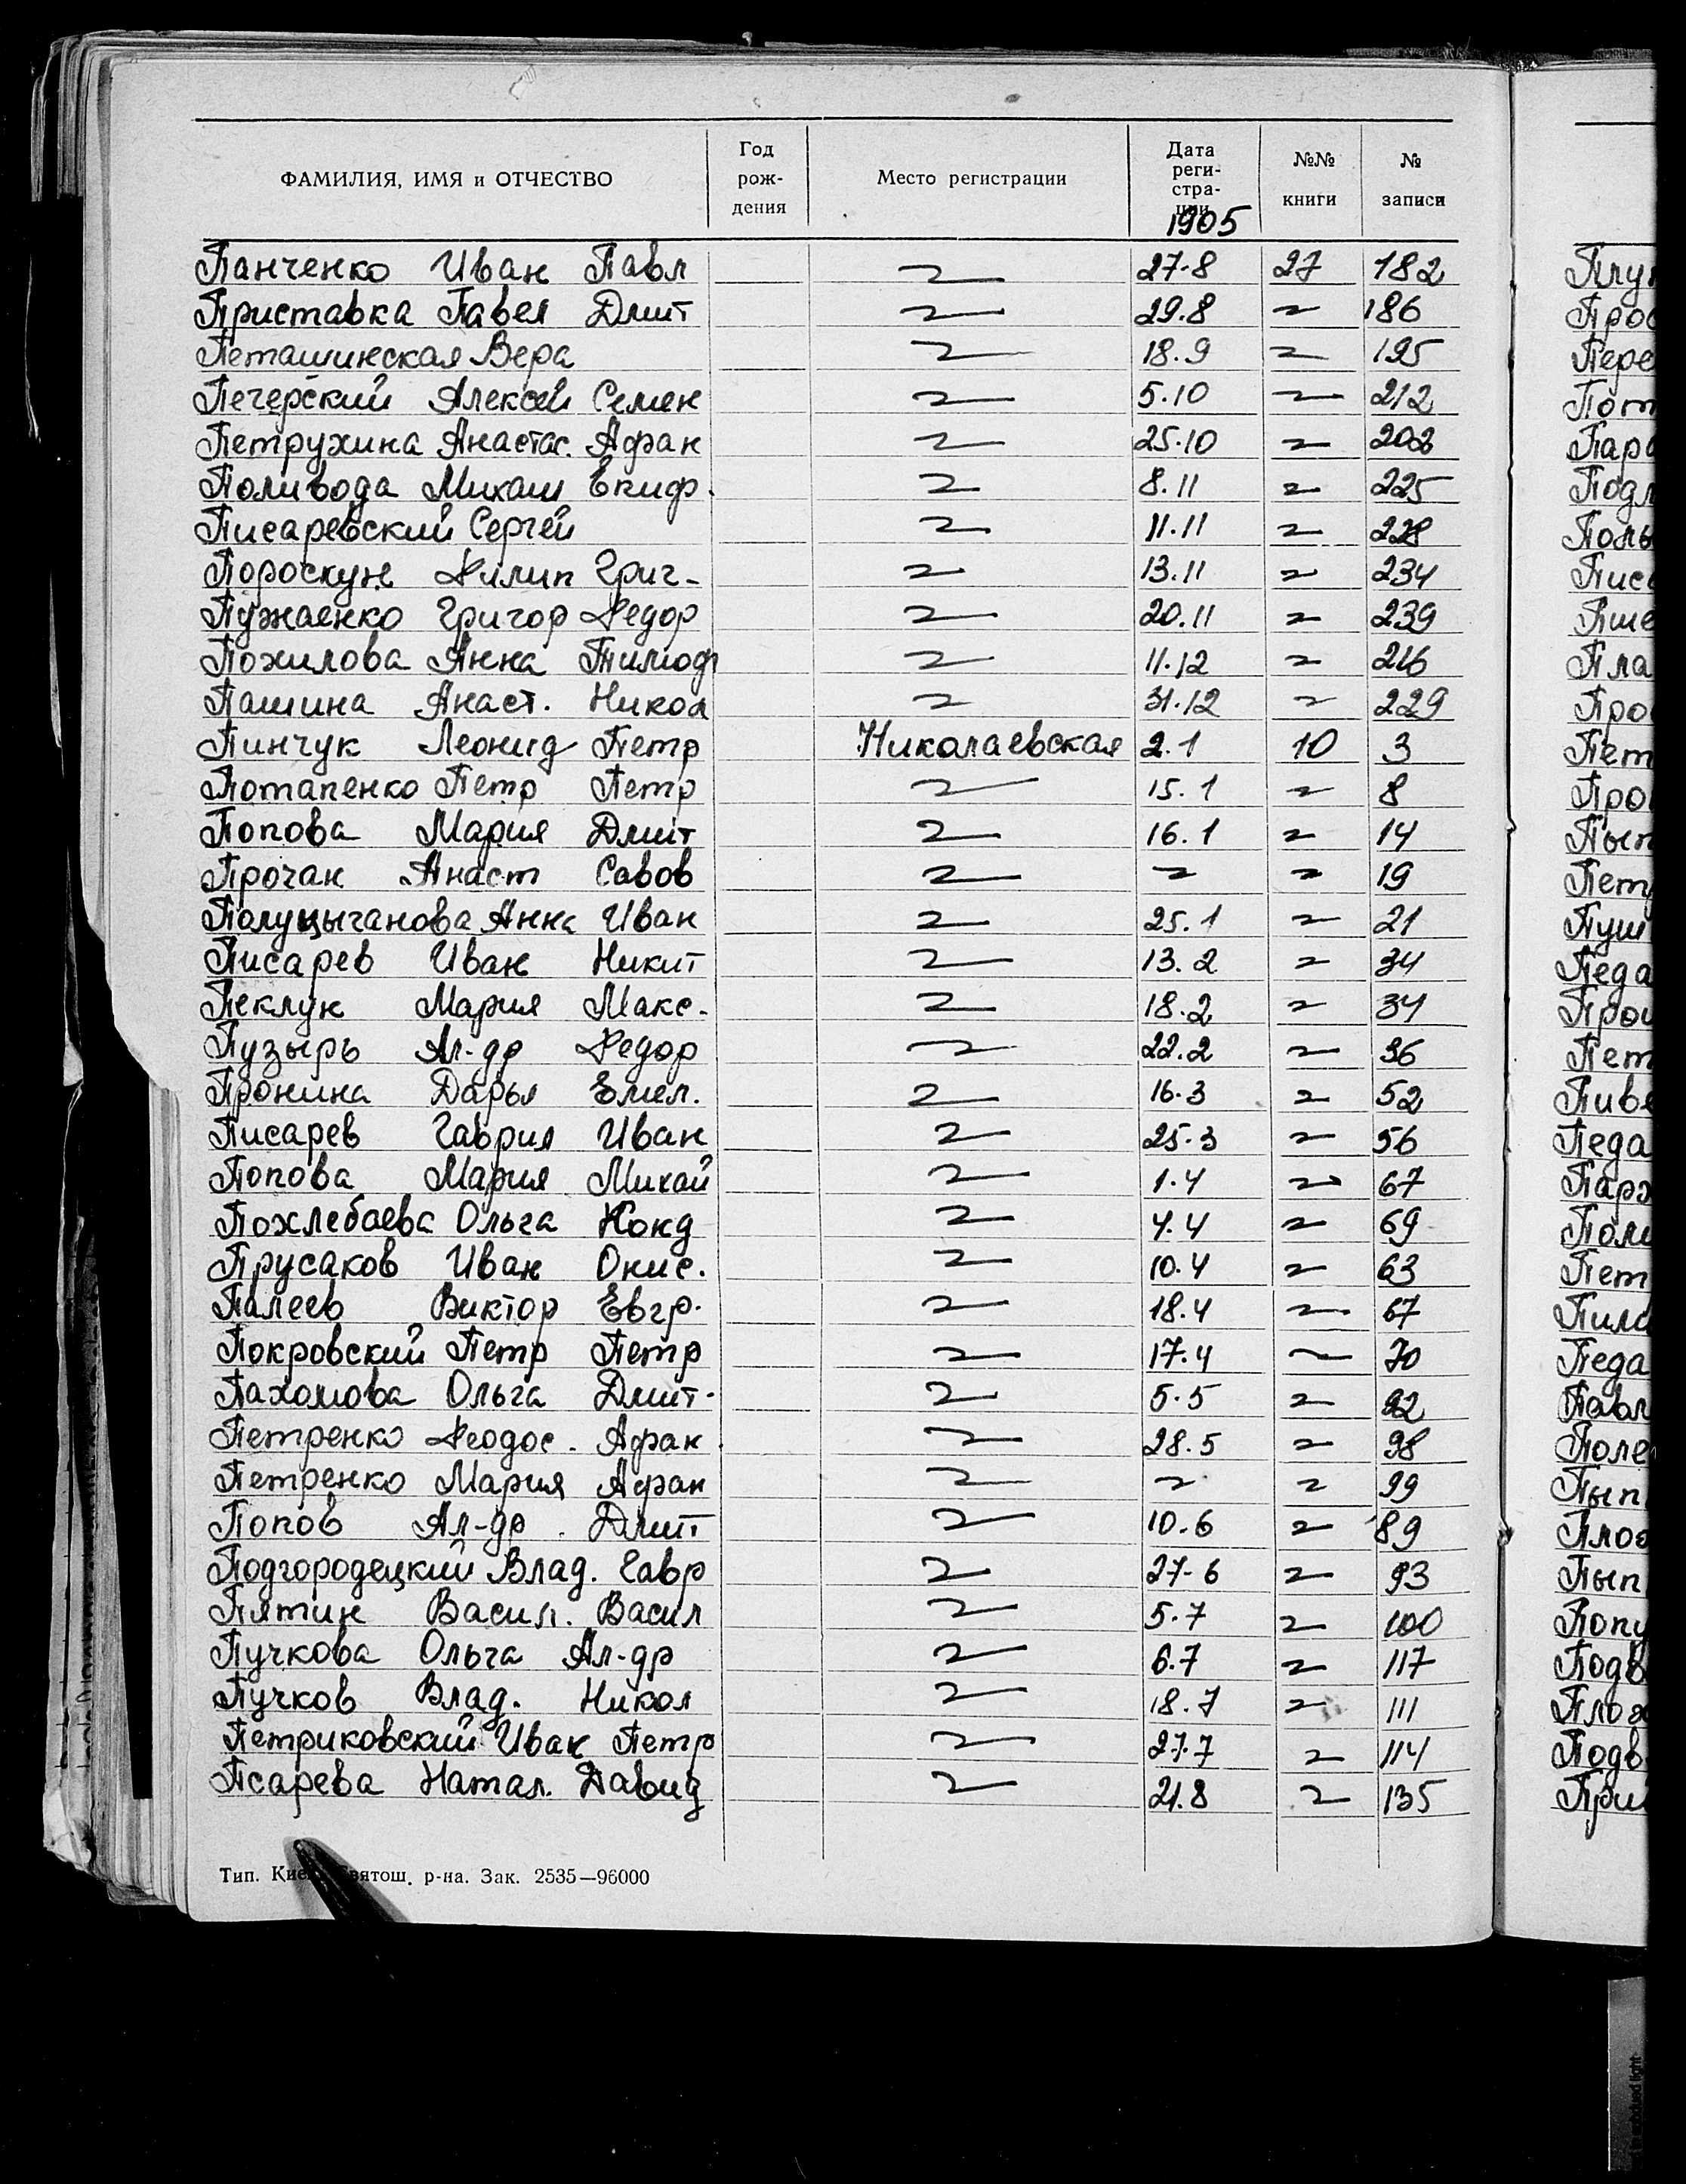 ФАМИЛИЯ, ИМЯ и ОТЧЕСТВО Год рож-дения Место регистрации Дата реги-стра-ции 1905 №№ книги № записи
Панченко Иван Павл 〃 27.8 27 182
Приставка Павел Дмит 〃 29.8 〃 186
Петашинская Вера 〃 18.9 〃 195
Печерский Алексей Семен 〃 5.10 〃 212
Петрухина Анастас. Афан 〃 25.10 〃 202
Поливода Михаил Епиф. 〃 8.11 〃 225
Писаревский Сергей 〃 11.11 〃 228
Пороскун Филип Григ- 〃 13.11 〃 234
Пужаенко Григор Федор 〃 20.11 〃 239
Похилова Анна Тимоф 〃 11.12 〃 216
Пашина Анаст. Никол 〃 31.12 〃 229
Пинчук Леонид Петр Николаевская 2.1 10 3
Потапенко Петр Петр 〃 15.1 〃 8
Попова Мария Дмит 〃 16.1 〃 14
Прочан Анаст Савов 〃 〃 〃 19
Полуцыганова Анна Иван 〃 25.1 〃 21
Писарев Иван Никит 〃 13.2 〃 34
Пеклун Мария Макс. 〃 18.2 〃 34
Пузырь Ал-др Федор 〃 22.2 〃 36
Пронина Дарья Емел. 〃 16.3 〃 52
Писарев Гаврил Иван 〃 25.3 〃 56
Попова Мария Михай 〃 1.4 〃 67
Похлебаева Ольга Конд 〃 4.4 〃 69
Прусаков Иван Онис. 〃 10.4 〃 63
Палеев Виктор Евгр. 〃 18.4 〃 67
Покровский Петр Петр 〃 17.4 〃 70
Пахомова Ольга Дмит. 〃 5.5 〃 92
Петренко Феодос. Афан 〃 28.5 〃 98
Петренко Мария Афан 〃 〃 〃 99
Попов Ал-др. Дмит 〃 10.6 〃 89
Подгородецкий Влад. Гавр 〃 27.6 〃 93
Пятин Васил. Васил 〃 5.7 〃 100
Пучкова Ольга Ал-др 〃 6.7 〃 117
Пучков Влад. Никол 〃 18.7 〃 111
Петриковский Иван Петр 〃 27.7 〃 114
Псарева Натал. Давид 〃 21.8 〃 135
Тип. Кие Святош. р-на. Зак. 2535—96000